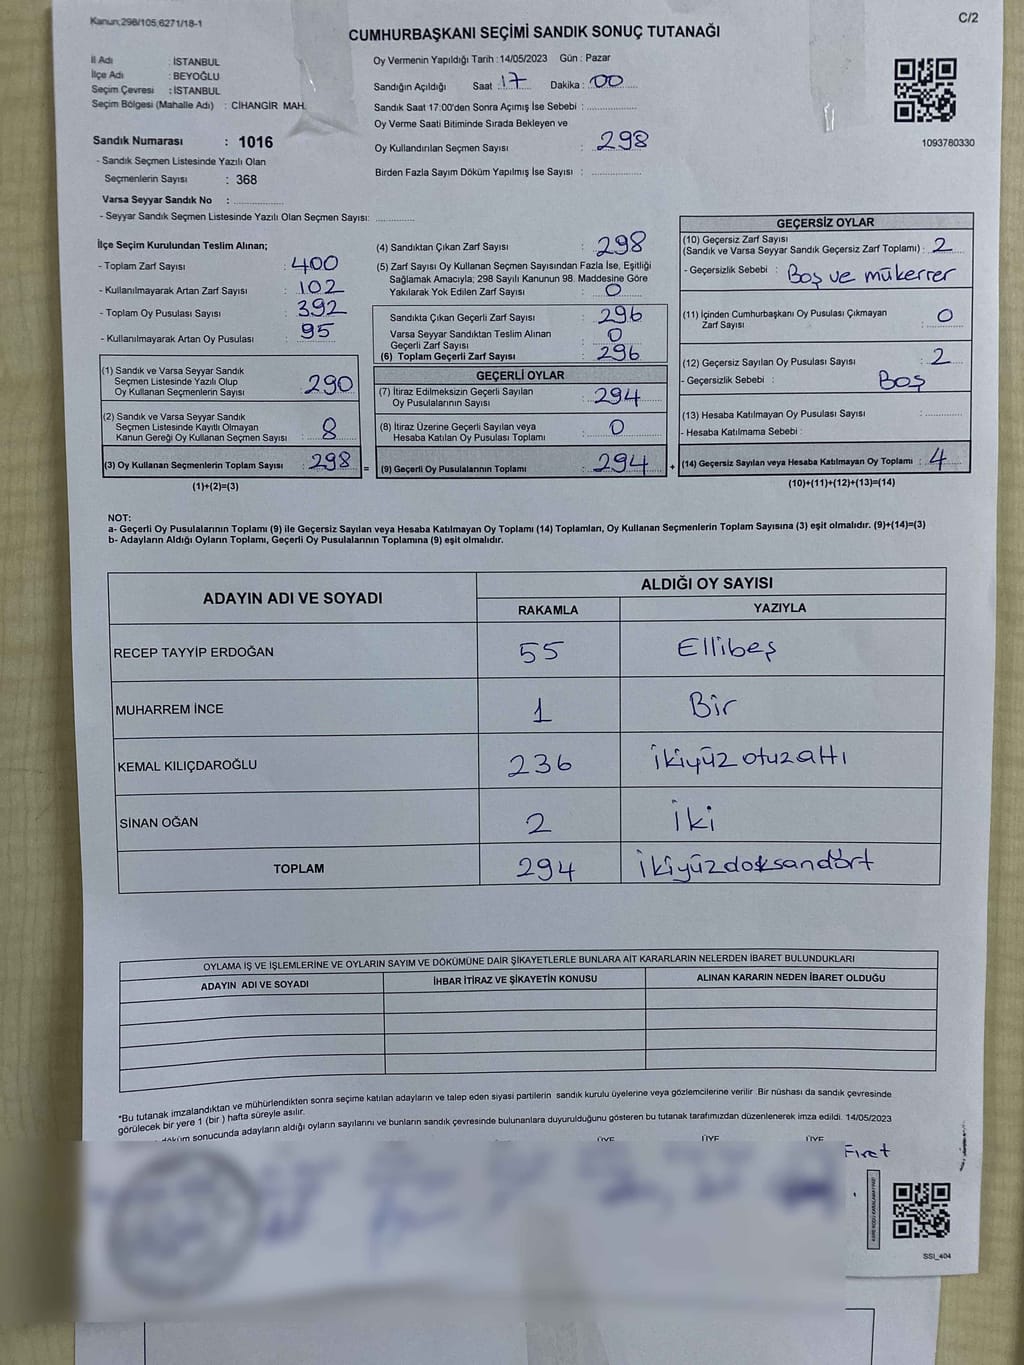 Kanun;298/105;6271/18-1
C/2
CUMHURBAŞKANI SEÇİMİ SANDIK SONUÇ TUTANAĞI
İl Adı : İSTANBUL
İlçe Adı : BEYOĞLU
Seçim Çevresi : İSTANBUL
Seçim Bölgesi (Mahalle Adı) : CİHANGİR MAH.
Sandık Numarası : 1016
- Sandık Seçmen Listesinde Yazılı Olan
Seçmenlerin Sayısı : 368
Varsa Seyyar Sandık No : ..............
- Seyyar Sandık Seçmen Listesinde Yazılı Olan Seçmen Sayısı: ............
Oy Vermenin Yapıldığı Tarih : 14/05/2023 Gün : Pazar
Sandığın Açıldığı Saat : 17 Dakika : 00
Sandık Saat 17:00'den Sonra Açımış İse Sebebi : ..............
Oy Verme Saati Bitiminde Sırada Bekleyen ve
Oy Kullandırılan Seçmen Sayısı : 298
Birden Fazla Sayım Döküm Yapılmış İse Sayısı : ..............
1093780330
İlçe Seçim Kurulundan Teslim Alınan;
- Toplam Zarf Sayısı : 400
- Kullanılmayarak Artan Zarf Sayısı : 102
- Toplam Oy Pusulası Sayısı : 392
- Kullanılmayarak Artan Oy Pusulası : 95
(1) Sandık ve Varsa Seyyar Sandık
Seçmen Listesinde Yazılı Olup
Oy Kullanan Seçmenlerin Sayısı : 290
(2) Sandık ve Varsa Seyyar Sandık
Seçmen Listesinde Kayıtlı Olmayan
Kanun Gereği Oy Kullanan Seçmen Sayısı : 8
(3) Oy Kullanan Seçmenlerin Toplam Sayısı : 298 =
(1)+(2)=(3)
(4) Sandıktan Çıkan Zarf Sayısı : 298
(5) Zarf Sayısı Oy Kullanan Seçmen Sayısından Fazla İse, Eşitliği
Sağlamak Amacıyla; 298 Sayılı Kanunun 98. Maddesine Göre
Yakılarak Yok Edilen Zarf Sayısı : 0
Sandıkta Çıkan Geçerli Zarf Sayısı : 296
Varsa Seyyar Sandıktan Teslim Alınan
Geçerli Zarf Sayısı : 0
(6) Toplam Geçerli Zarf Sayısı : 296
GEÇERLİ OYLAR
(7) İtiraz Edilmeksizin Geçerli Sayılan
Oy Pusulalarının Sayısı : 294
(8) İtiraz Üzerine Geçerli Sayılan veya
Hesaba Katılan Oy Pusulası Toplamı : 0
(9) Geçerli Oy Pusulalarının Toplamı : 294 +
GEÇERSİZ OYLAR
(10) Geçersiz Zarf Sayısı
(Sandık ve Varsa Seyyar Sandık Geçersiz Zarf Toplamı) : 2
- Geçersizlik Sebebi : Boş ve mükerrer
(11) İçinden Cumhurbaşkanı Oy Pusulası Çıkmayan
Zarf Sayısı : 0
(12) Geçersiz Sayılan Oy Pusulası Sayısı : 2
- Geçersizlik Sebebi : Boş
(13) Hesaba Katılmayan Oy Pusulası Sayısı : ..............
- Hesaba Katılmama Sebebi :
(14) Geçersiz Sayılan veya Hesaba Katılmayan Oy Toplamı : 4
(10)+(11)+(12)+(13)=(14)
NOT:
a- Geçerli Oy Pusulalarının Toplamı (9) ile Geçersiz Sayılan veya Hesaba Katılmayan Oy Toplamı (14) Toplamları, Oy Kullanan Seçmenlerin Toplam Sayısına (3) eşit olmalıdır. (9)+(14)=(3)
b- Adayların Aldığı Oyların Toplamı, Geçerli Oy Pusulalarının Toplamına (9) eşit olmalıdır.
ADAYIN ADI VE SOYADI ALDIĞI OY SAYISI
RAKAMLA YAZIYLA
RECEP TAYYİP ERDOĞAN 55 Ellibeş
MUHARREM İNCE 1 Bir
KEMAL KILIÇDAROĞLU 236 ikiyüz otuzaltı
SİNAN OĞAN 2 İki
TOPLAM 294 ikiyüzdoksandört
OYLAMA İŞ VE İŞLEMLERİNE VE OYLARIN SAYIM VE DÖKÜMÜNE DAİR ŞİKAYETLERLE BUNLARA AİT KARARLARIN NELERDEN İBARET BULUNDUKLARI
ADAYIN ADI VE SOYADI İHBAR İTİRAZ VE ŞİKAYETİN KONUSU ALINAN KARARIN NEDEN İBARET OLDUĞU
*Bu tutanak imzalandıktan ve mühürlendikten sonra seçime katılan adayların ve talep eden siyasi partilerin sandık kurulu üyelerine veya gözlemcilerine verilir .Bir nüshası da sandık çevresinde
görülecek bir yere 1 (bir ) hafta süreyle asılır.
döküm sonucunda adayların aldığı oyların sayılarını ve bunların sandık çevresinde bulunanlara duyurulduğunu gösteren bu tutanak tarafımızdan düzenlenerek imza edildi. 14/05/2023
ÜYE ÜYE ÜYE
Fırat
SSI_404